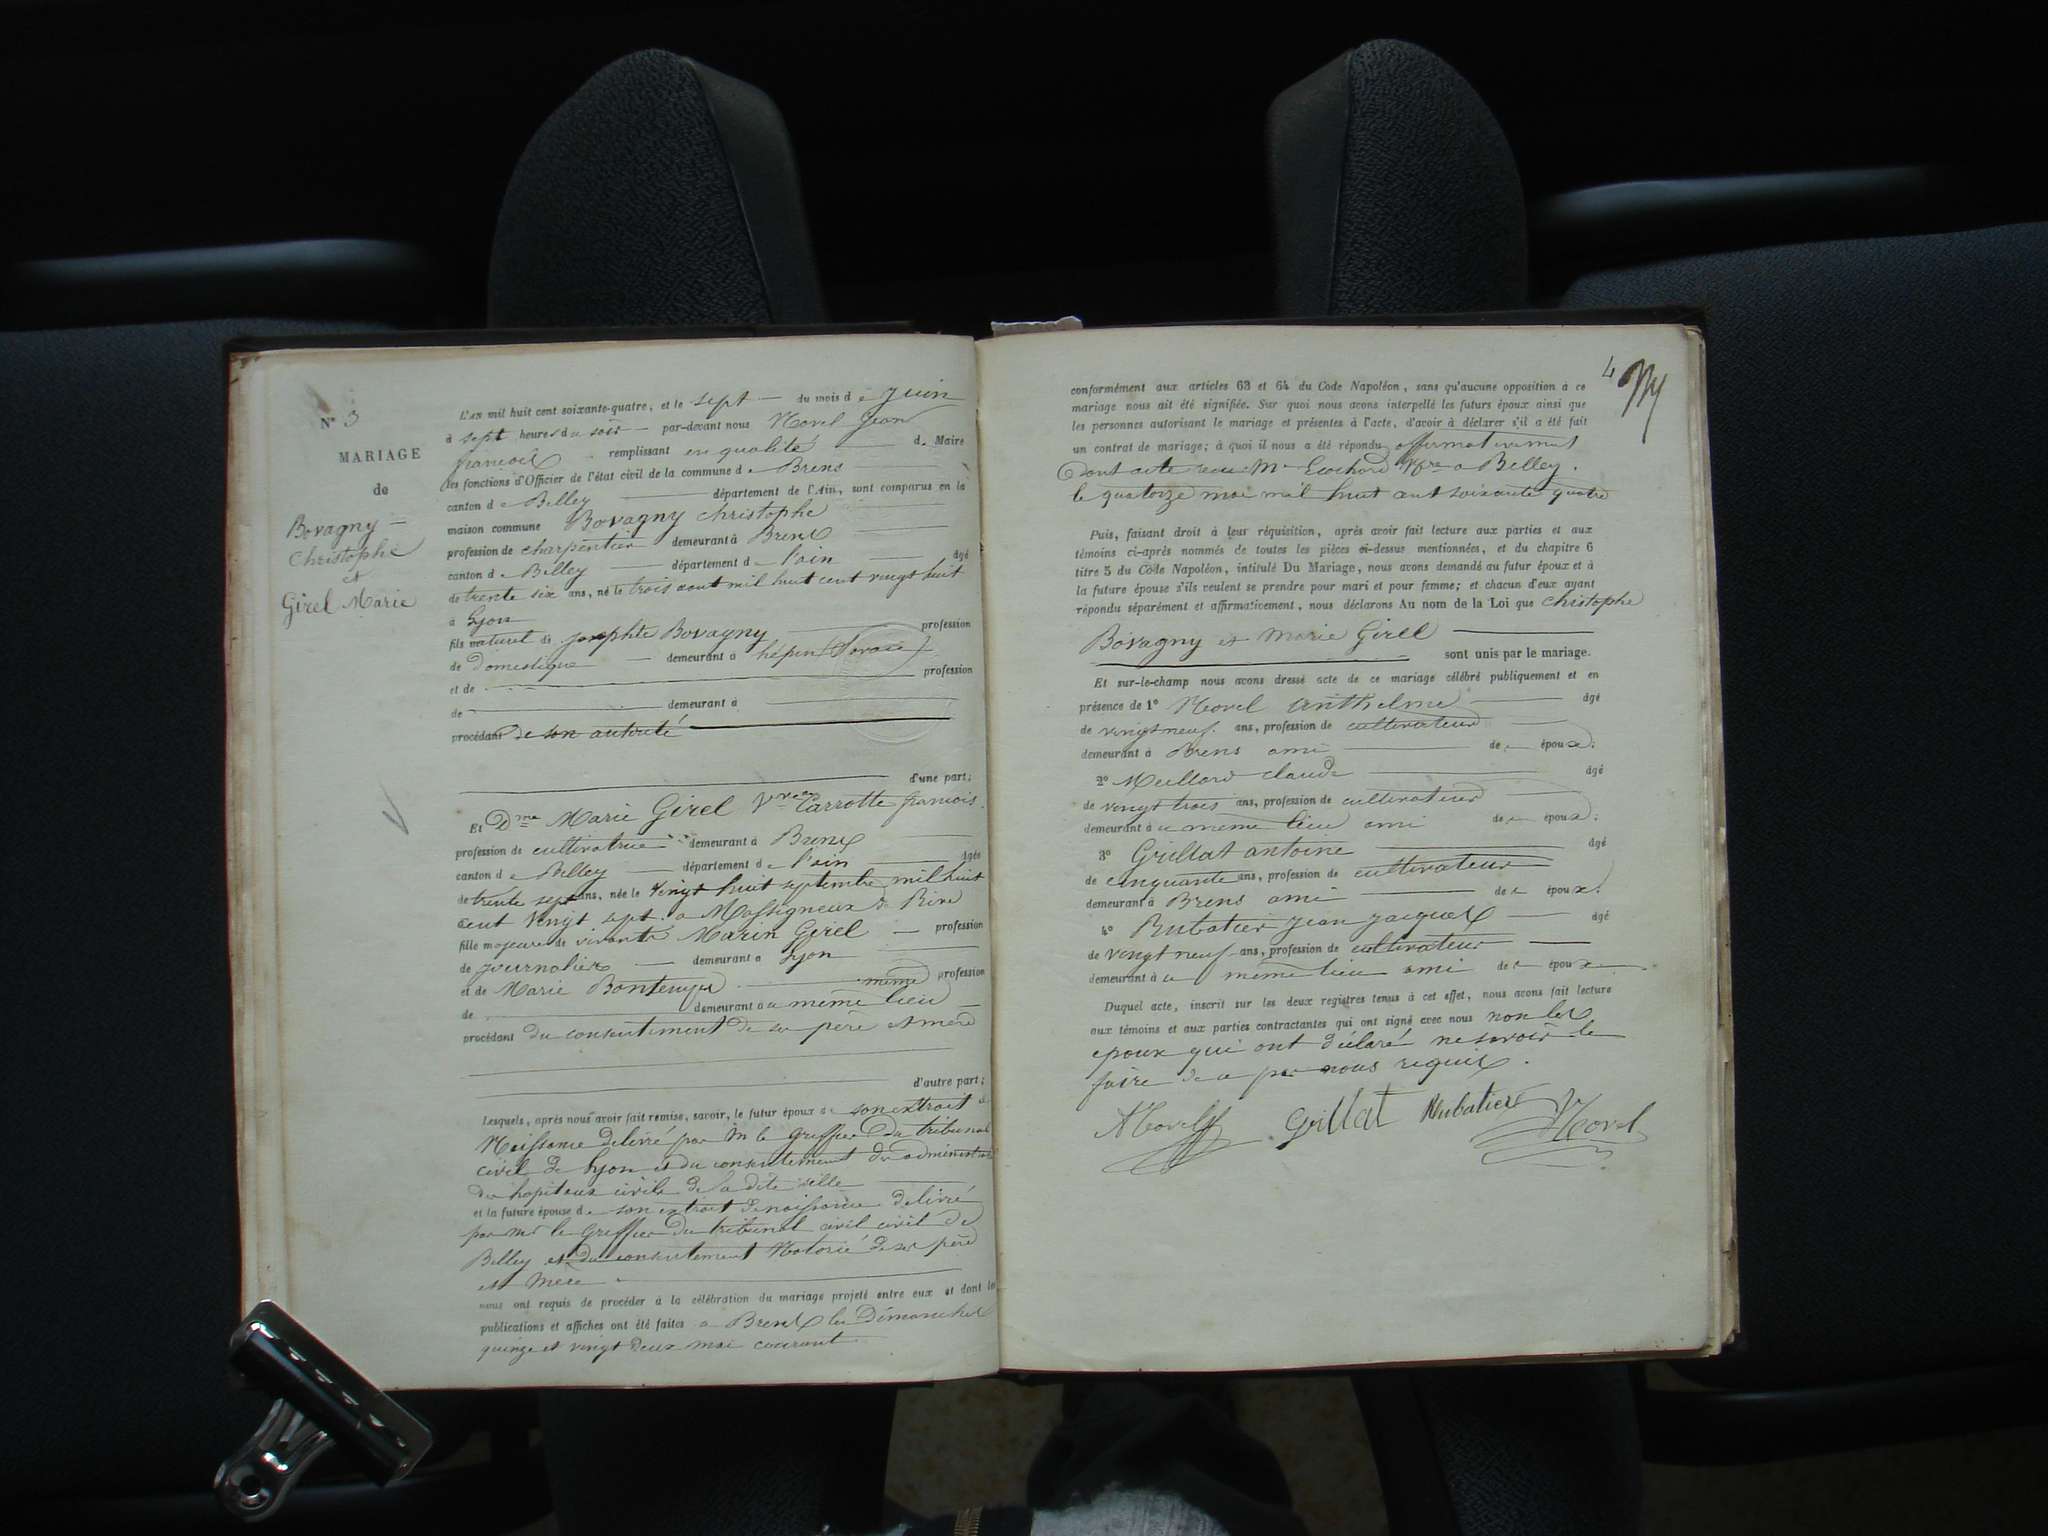 N° 3
MARIAGE
de
Bovagny
Christophe
et
Girel Marie
L'an mil huit cent soixante-quatre, et le sept du mois de Juin
à sept heures du soir par-devant nous Morel Jean
francois remplissant en qualité de Maire
les fonctions d'Officier de l'état civil de la commune de Brens
canton de Belley département de l'Ain, sont comparus en la
maison commune Bovagny Christophe
profession de charpentier demeurant à Brens
canton de Belley département de l'ain âgé
de trente six ans, né le trois aout mil huit cent vingt huit
à Lyon
fils naturel de josephte Bovagny profession
de domestique demeurant à (Savoie)
et de profession
de demeurant à
procédant de son autorité
d'une part;
Et Dme Marie Girel Vve Carrotte francois
profession de cultivatrice demeurant à Brens
canton de Belley département de l'ain âgée
de trente sept ans, née le vingt huit septembre mil huit
cent vingt sept à Massigneux de Rive
fille majeure de vivants Marin Girel profession
de journalier demeurant à Lyon
et de Marie même profession
de demeurant à u même lieu
procédant du consentement de ses père et mère
d'autre part;
Lesquels, après nous avoir fait remise, savoir, le futur époux de son extrait de
Naissance délivré par Mr le Greffier du tribunal
civil de Lyon et du consentement des
des hopitaux civils de la dite ville
et la future épouse de son extrait de naissance délivré
par Mr le Greffier du tribunal civil civil de
Belley et du consentement Notarié de ses père
et Mère
nous ont requis de procéder à la célébration du mariage projeté entre eux et dont les
publications et affiches ont été faites à Brens les Dimanches
quinze et vingt deux mai courant
4
conformément aux articles 63 et 64 du Code Napoléon, sans qu'aucune opposition à ce
mariage nous ait été signifiée. Sur quoi nous avons interpellé les futurs époux ainsi que
les personnes autorisant le mariage et présentes à l'acte, d'avoir à déclarer s'il a été fait
un contrat de mariage; à quoi il nous a été répondu affirmativement
Dont acte recu Me Ecochard Nre à Belley.
le quatorze mai mil huit cent soixante quatre
Puis, faisant droit à leur réquisition, après avoir fait lecture aux parties et aux
témoins ci-après nommés de toutes les pièces ci-dessus mentionnées, et du chapitre 6
titre 5 du Code Napoléon, intitulé Du Mariage, nous avons demandé au futur époux et à
la future épouse s'ils veulent se prendre pour mari et pour femme; et chacun d'eux ayant
répondu séparément et affirmativement, nous déclarons Au nom de la Loi que Christophe
Bovagny et Marie Girel
sont unis par le mariage.
Et sur-le-champ nous avons dressé acte de ce mariage célébré publiquement et en
présence de 1° Morel Anthelme âgé
de vingt neuf ans, profession de cultivateur
demeurant à Brens ami des époux;
2° Meillard claude âgé
de vingt trois ans, profession de cultivateur
demeurant à u même lieu ami des époux;
3° Grillat antoine âgé
de cinquante ans, profession de cultivateur
demeurant à Brens ami des époux;
4° Rubatier jean jacques âgé
de vingt neuf ans, profession de cultivateur
demeurant à u même lieu ami des époux
Duquel acte, inscrit sur les deux registres tenus à cet effet, nous avons fait lecture
aux témoins et aux parties contractantes qui ont signé avec nous non les
epoux qui ont déclaré ne savoir le
faire de ce par nous requis.
AMorel Grillat Rubatier Morel